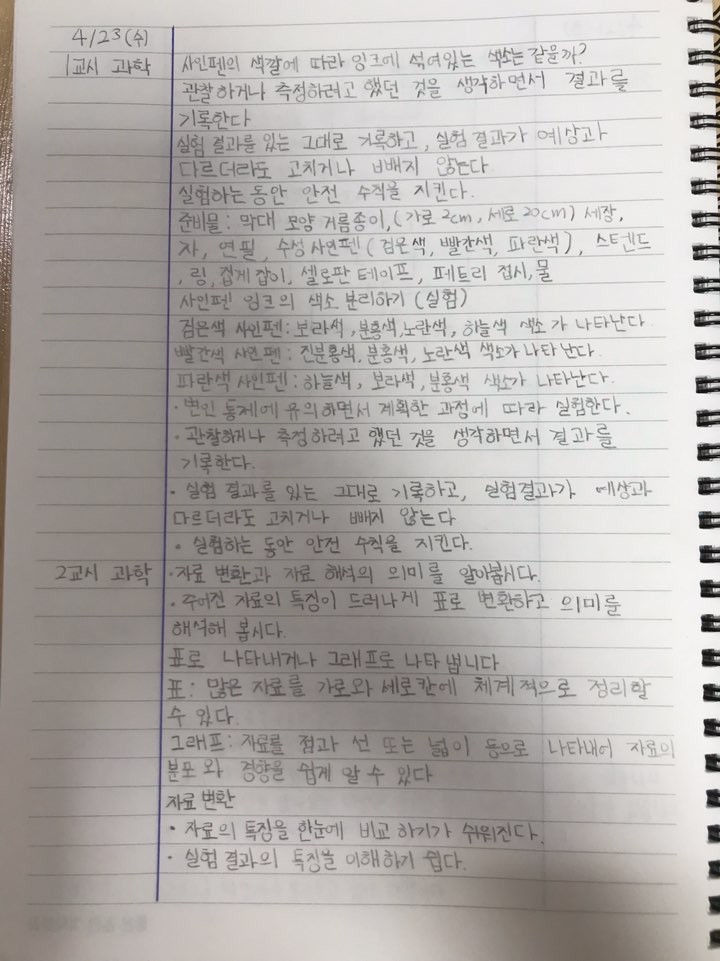 4/23(수)
1교시 과학 사인펜의 색깔에 따라 잉크에 섞여있는 색소는 같을까?
관찰하거나 측정하려고 했던 것을 생각하면서 결과를
기록한다
실험 결과를 있는 그대로 기록하고, 실험 결과가 예상과
다르더라도 고치거나 빼지 않는다.
실험하는 동안 안전 수칙을 지킨다.
준비물: 막대 모양 거름종이,(가로 2cm, 세로 20cm) 세장,
자, 연필, 수성 사인펜(검은색, 빨간색, 파란색), 스텐드
, 링, 집게 잡이, 셀로판 테이프, 페트리 접시, 물
사인펜 잉크의 색소 분리하기 (실험)
검은색 사인펜: 보라색, 분홍색, 노란색, 하늘색 색소가 나타난다.
빨간색 사인펜: 진분홍색, 분홍색, 노란색 색소가 나타난다.
파란색 사인펜: 하늘색, 보라색, 분홍색 색소가 나타난다.
· 변인 통제에 유의하면서 계획한 과정에 따라 실험한다.
· 관찰하거나 측정하려고 했던 것을 생각하면서 결과를
기록한다.
· 실험 결과를 있는 그대로 기록하고, 실험결과가 예상과
다르더라도 고치거나 빼지 않는다
· 실험하는 동안 안전 수칙을 지킨다.
2교시 과학 · 자료 변환과 자료 해석의 의미를 알아봅시다.
· 주어진 자료의 특징이 드러나게 표로 변환하고 의미를
해석해 봅시다.
표로 나타내거나 그래프로 나타냅니다
표: 많은 자료를 가로와 세로칸에 체계적으로 정리할
수 있다.
그래프: 자료를 점과 선 또는 넓이 등으로 나타내어 자료의
분포와 경향을 쉽게 알 수 있다
자료 변환
· 자료의 특징을 한눈에 비교 하기가 쉬워진다.
· 실험 결과의 특징을 이해하기 쉽다.